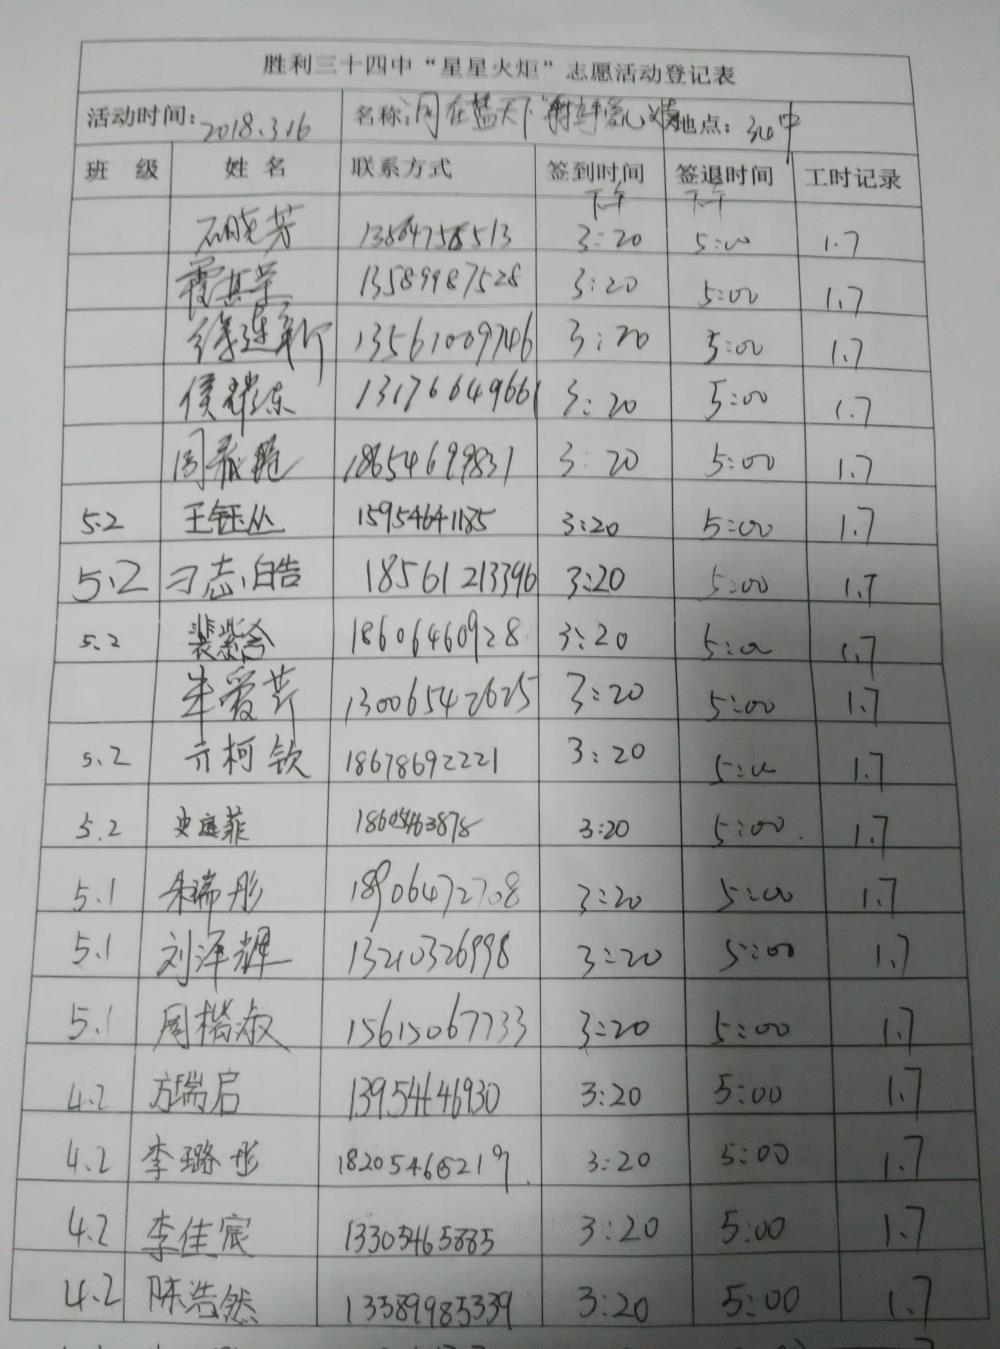 胜利三十四中“星星火炬”志愿活动登记表
活动时间：2018.3.16 名称：同在蓝天下 地点：34中
班 级 姓 名 联系方式 签到时间 签退时间 工时记录
下午 下午
石晓芳 13864758513 3:20 5:00 1.7
霍其荣 13589987528 3:20 5:00 1.7
徐连新 13561009746 3:20 5:00 1.7
侯 13176649661 3:20 5:00 1.7
周 艳 18654699831 3:20 5:00 1.7
5.2 王钰丛 15954641185 3:20 5:00 1.7
5.2 刁志皓 18561213396 3:20 5:00 1.7
5.2 裴紫含 18606460928 3:20 5:00 1.7
朱爱芹 13006542625 3:20 5:00 1.7
5.2 亓柯钦 18678692221 3:20 5:00 1.7
5.2 史庭菲 18605463878 3:20 5:00 1.7
5.1 朱瑞彤 18906472708 3:20 5:00 1.7
5.1 刘泽辉 13210326998 3:20 5:00 1.7
5.1 周楷淑 15615067733 3:20 5:00 1.7
4.2 方瑞启 13954646930 3:20 5:00 1.7
4.2 李璐彤 18205465219 3:20 5:00 1.7
4.2 李佳宸 13305465885 3:20 5:00 1.7
4.2 陈浩然 13589985339 3:20 5:00 1.7